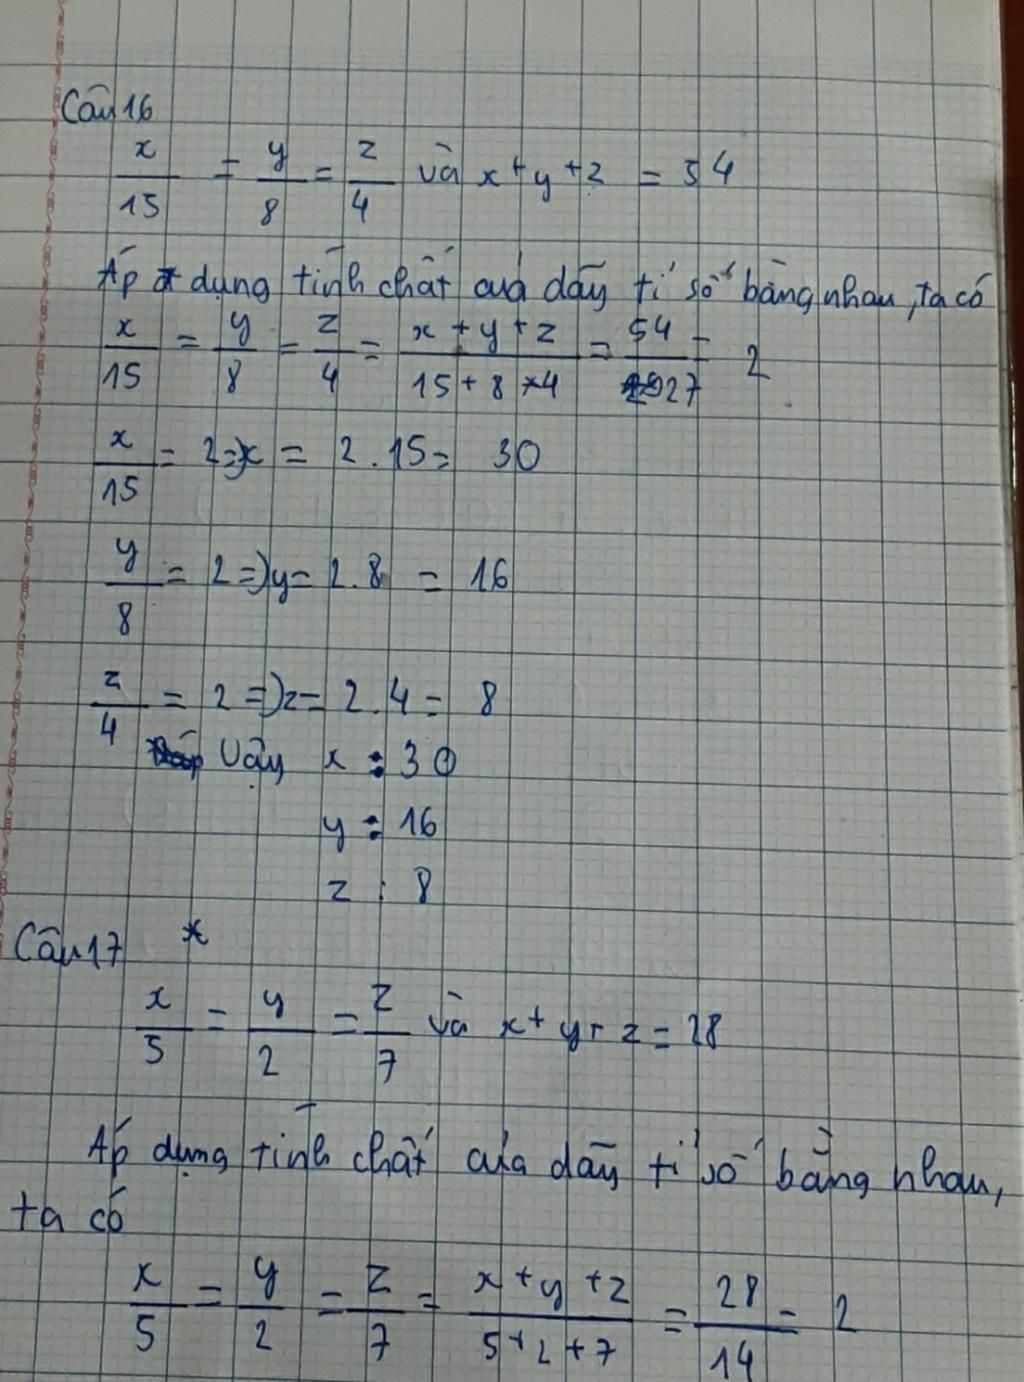 Câu 16
x/15 = y/8 = z/4 và x+y+z = 54
Áp dụng tính chất của dãy tỉ số bằng nhau, ta có
x/15 = y/8 = z/4 = x+y+z/15+8+4 = 54/27 = 2
x/15 = 2=>x = 2.15= 30
y/8 = 2=>y= 2.8 = 16
z/4 = 2=>z= 2.4= 8
Vậy x : 30
y : 16
z : 8
Câu 17 x
x/5 = y/2 = z/7 và x+y+z=28
Áp dụng tính chất của dãy tỉ số bằng nhau,
ta có
x/5 = y/2 = z/7 = x+y+z/5+2+7 = 28/14 = 2